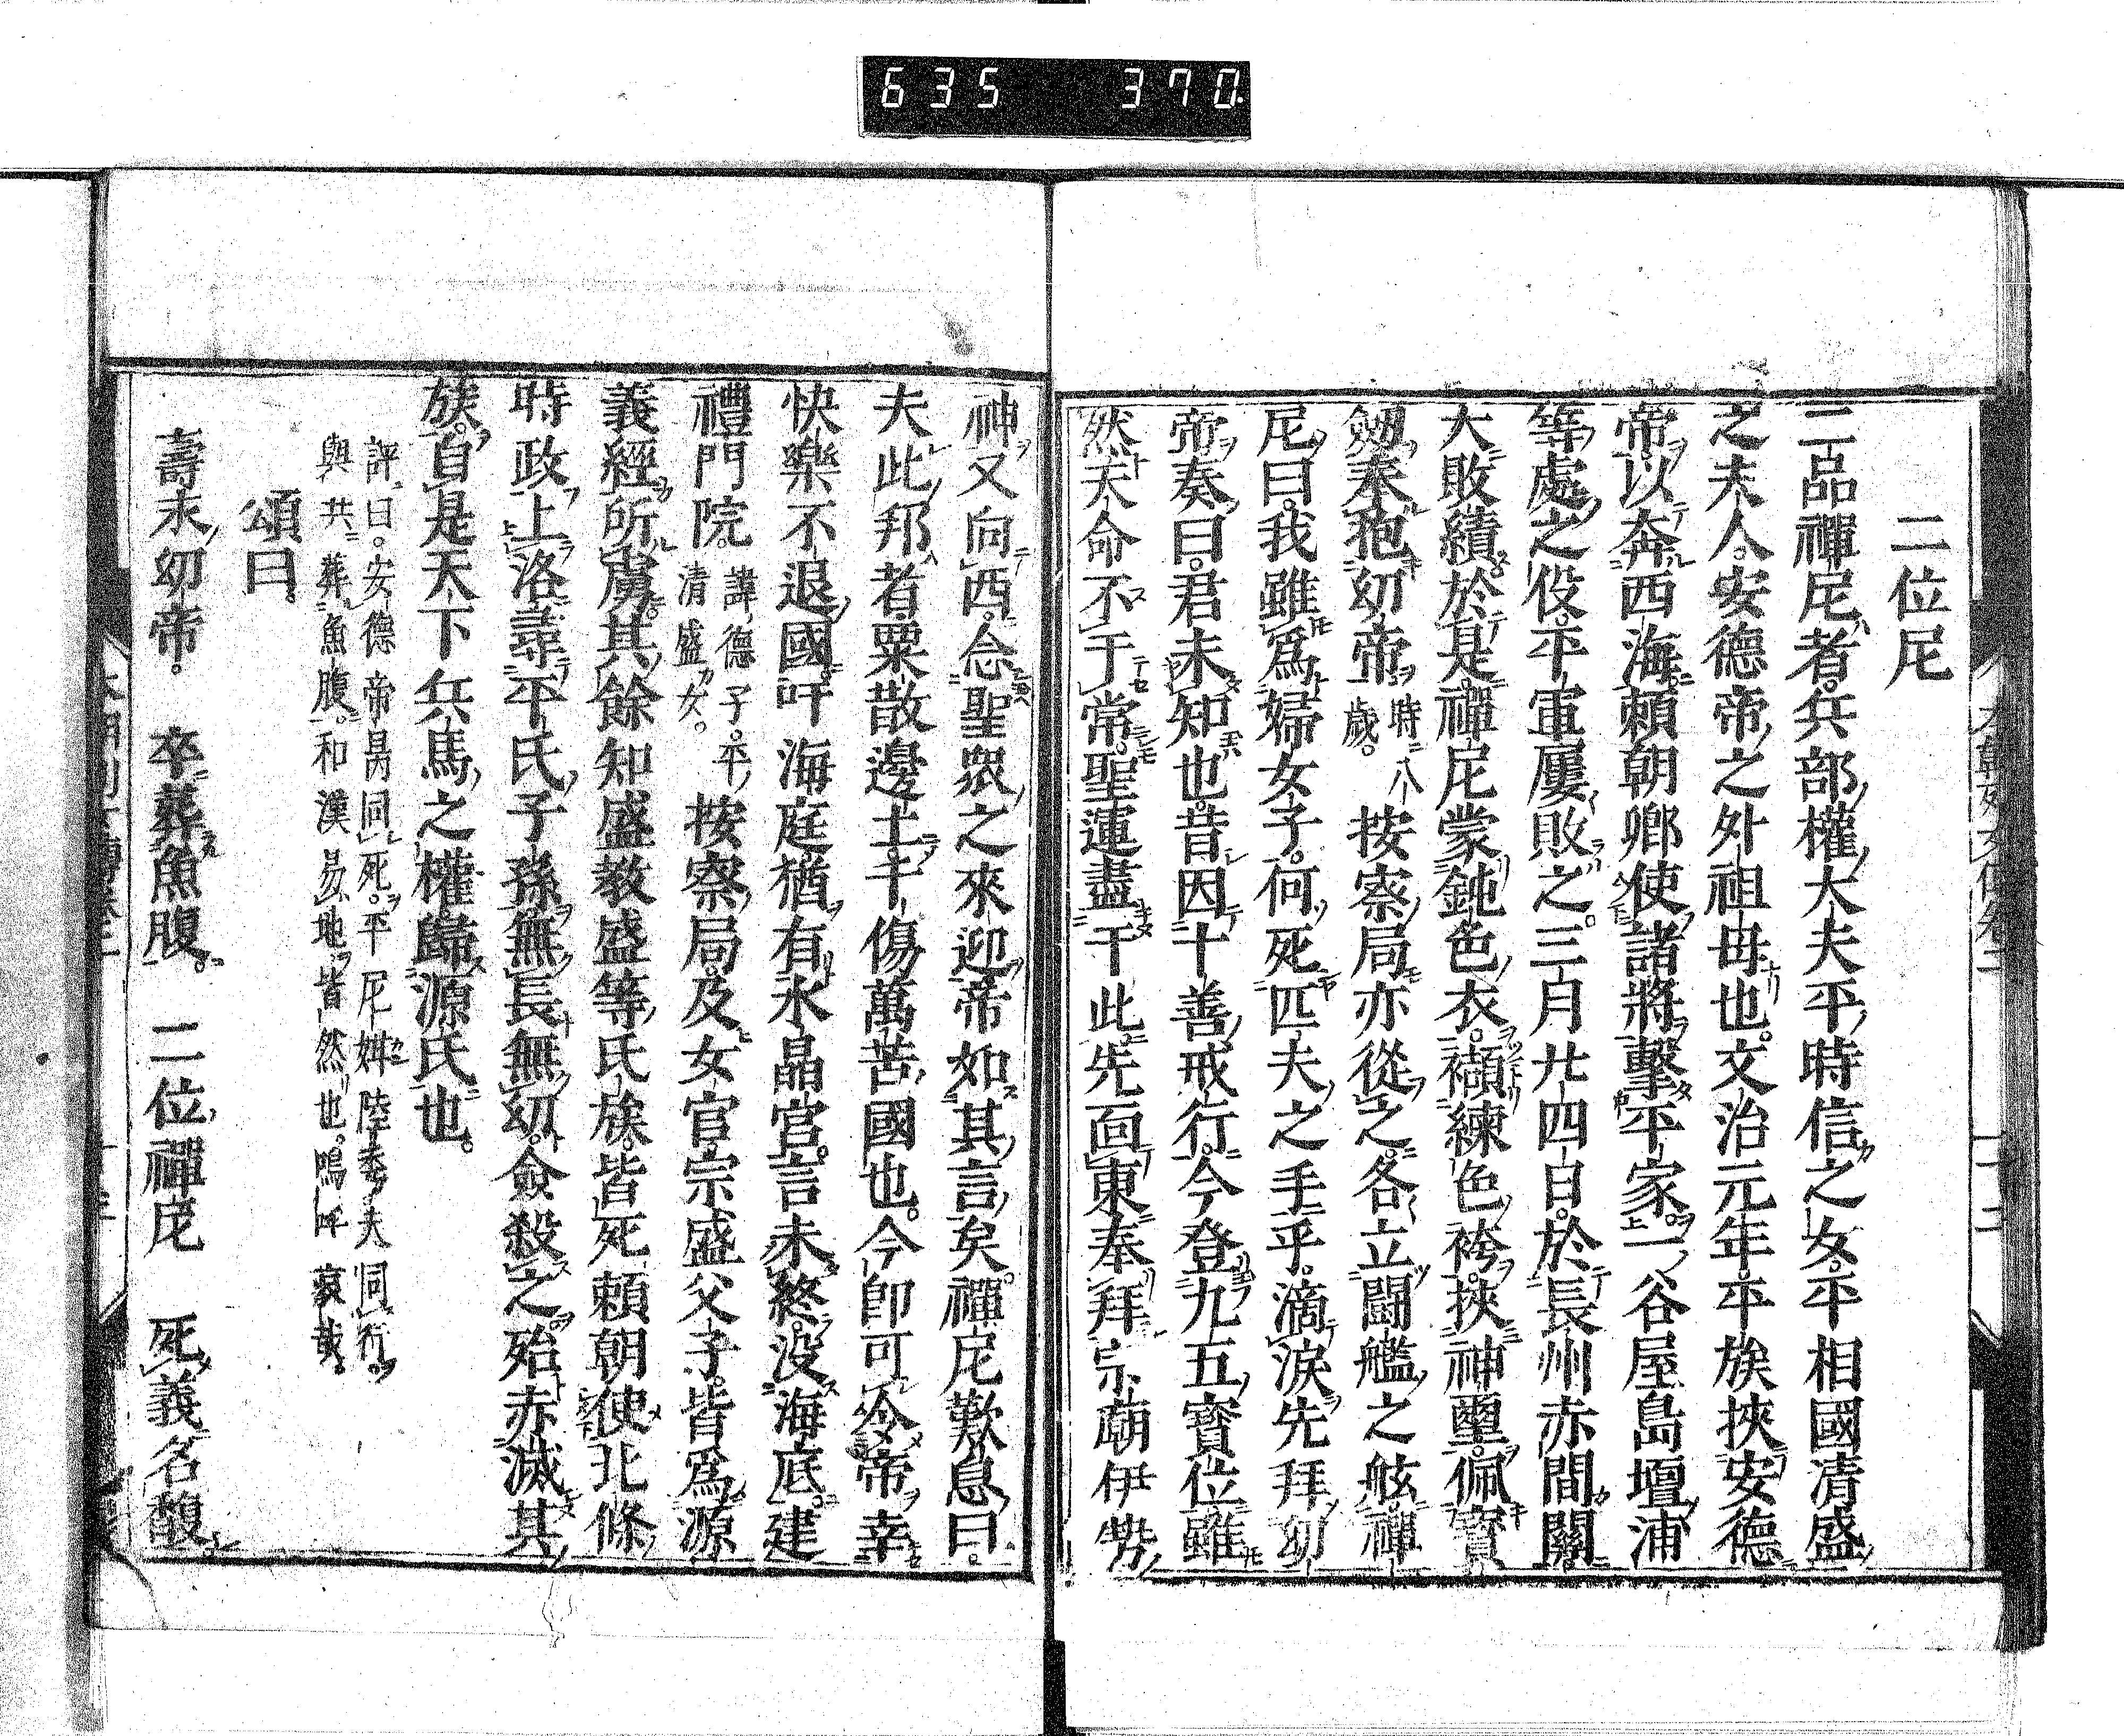 635 370
二位尼
二品禪尼者。兵部權大夫平時信之女。平相國清盛
之夫人。安德帝之外祖母也。文治元年。平族挾安德
帝以奔西海。賴朝卿使諸將擊平家。一谷屋島壇浦
等處之役。平軍屢敗之。三月廿四日。於長州赤間關
大敗績。於是禪尼蒙鈍色衣。纈練色袴。挾神璽。佩寶
劔。奉抱幼帝時八歲。按察局亦從之。各立鬪艦之舷。禪
尼曰。我雖爲婦女子。何死匹夫之手乎。滴淚先拜幼
帝奏曰。君未知也。昔因十善戒行。今登九五寶位。雖
然天命不于常。聖運盡于此。先面東奉拜宗廟伊勢
神。又向西。念聖眾之來迎。帝如其言矣。禪尼歎息曰。
夫此邦者。粟散邊土。千傷萬苦國也。今卽可令帝幸
快樂不退國。吁海庭猶有水晶宮。言未終。沒海底。建
禮門院。諱德子。平清盛女。按察局。及女官宗盛父子。皆爲源
義經所虜。其餘知盛教盛等氏族。皆死。賴朝使北條
時政上洛。尋平氏子孫。無長無幼。僉殺之。殆赤滅其
族。自是天下兵馬之權。歸源氏也。
評曰。安德帝昺同死。平尼娣陸秀夫同行。
與共葬魚腹。和漢易地皆然也。嗚呼哀哉。
頌曰。
壽永幼帝。 卒葬魚腹。 二位禪尼 死義名馥。